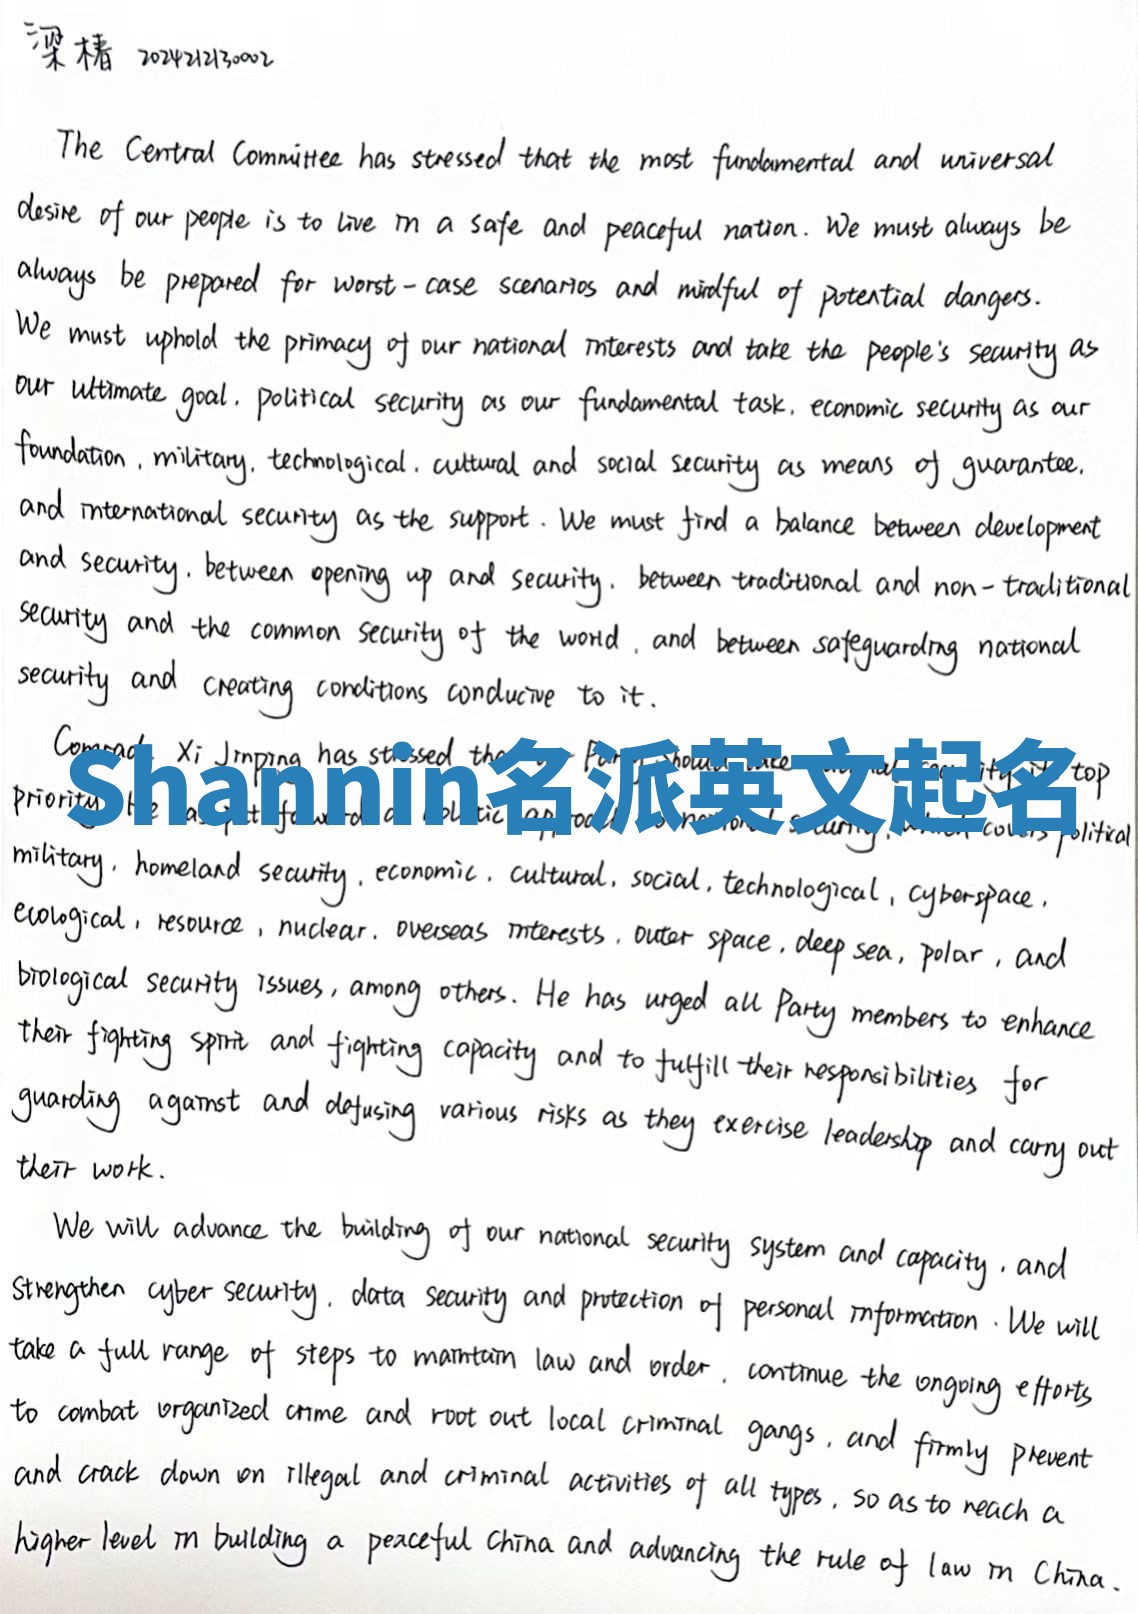 梁椿 2024212130002
The Central Committee has stressed that the most fundamental and universal
desire of our people is to live in a safe and peaceful nation. We must always be
always be prepared for worst-case scenarios and mindful of potential dangers.
We must uphold the primacy of our national interests and take the people's security as
our ultimate goal, political security as our fundamental task, economic security as our
foundation, military, technological, cultural and social security as means of guarantee,
and international security as the support. We must find a balance between development
and security, between opening up and security, between traditional and non-traditional
security and the common security of the world, and between safeguarding national
security and creating conditions conducive to it.
Xi Jinping has stressed top
priority. He political
Shannin名派英文起名
military, homeland security, economic, cultural, social, technological, cyberspace,
ecological, resource, nuclear, overseas interests, outer space, deep sea, polar, and
biological security issues, among others. He has urged all Party members to enhance
their fighting spirit and fighting capacity and to fulfill their responsibilities for
guarding against and defusing various risks as they exercise leadership and carry out
their work.
We will advance the building of our national security system and capacity, and
strengthen cyber security, data security and protection of personal information. We will
take a full range of steps to maintain law and order, continue the ongoing efforts
to combat organized crime and root out local criminal gangs, and firmly prevent
and crack down on illegal and criminal activities of all types, so as to reach a
higher level in building a peaceful China and advancing the rule of law in China.